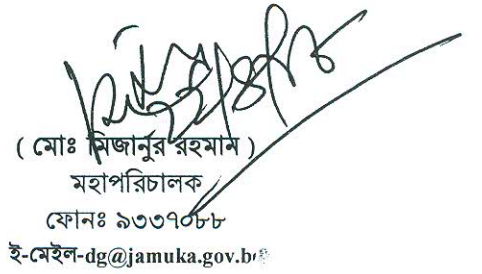 ( মোঃ মিজানুর রহমান )
মহাপরিচালক
ফোনঃ ৯৩৩৭০৮৮
ই-মেইল-dg@jamuka.gov.b